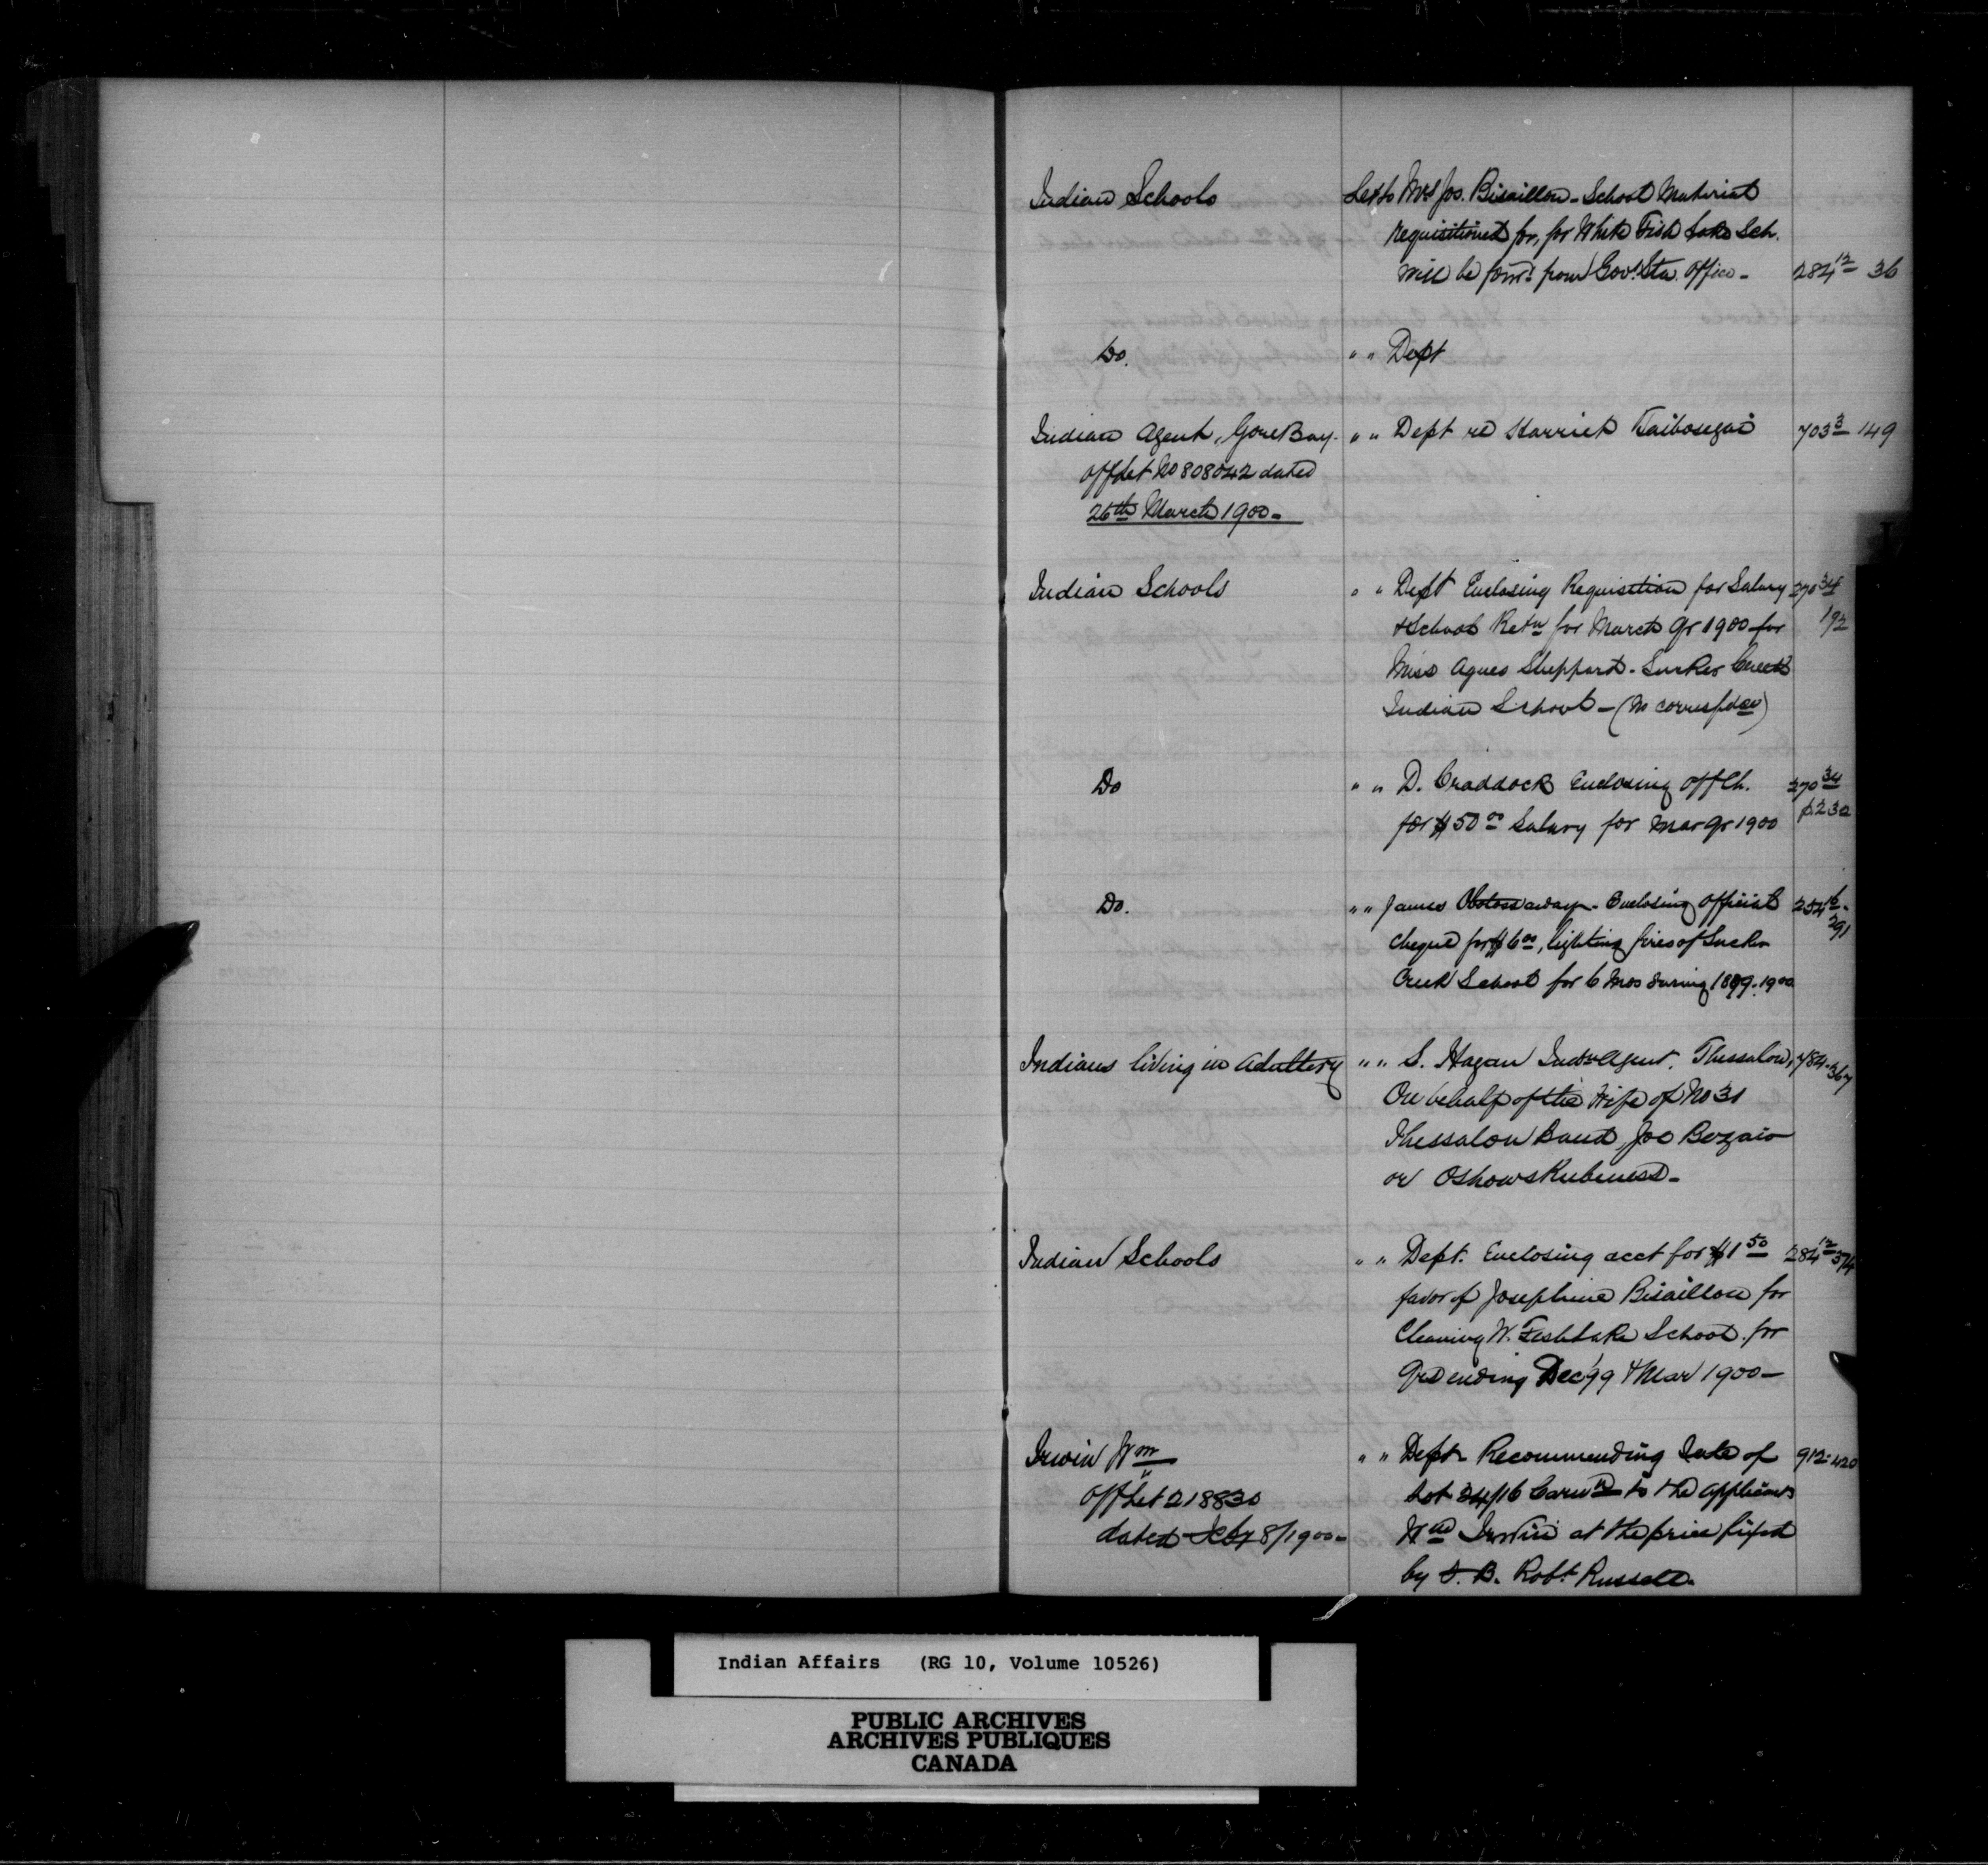 Indian Schools Let to Mrs Jos. Bisaillon - School Material
requisitioned for, for White Fish Lake Sch.
will be forw'd from Gov't Sta. Office - 284 12 36
Do. " " Dept
Indian Agent, Gore Bay. " " Dept re Harriet 703 3 149
Off Let No 808042 dated
26th March 1900 -
Indian Schools " " Dept Enclosing Requisition for Salary 270 34
& School Retn for March qr 1900 for 192
Miss Agnes Sheppard - Sucker Creek
Indian School - (no correspdce)
Do " " D. Craddock Enclosing off Ch. 270 34
for $50 00 Salary for Mar qr 1900 p 232
Do. " " James - Enclosing official 254 16
cheque for $6 00, lighting fires of Sucker 291
Creek School for 6 Mos during 1899-1900
Indians living in Adultery " " S. Hagan Indn Agent, Thessalon, 784-367
On behalf of the Wife of No 30
Thessalon Band, Joe
or
Indian Schools " " Dept. Enclosing acct for $1 50 284 12 374
favor of Josephine Bisaillon for
Cleaning W. Fish Lake School for
Qrs ending Dec '99 & Mar 1900 -
Irwin Wm " " Dept Recommending Sale of 912-420
Off Let 218830 Lot 34/16 Carn to the applicant
dated Feby 8/1900 - Wm Irwin at the price fixed
by Robt Russell.
Indian Affairs (RG 10, Volume 10526)
PUBLIC ARCHIVES
ARCHIVES PUBLIQUES
CANADA